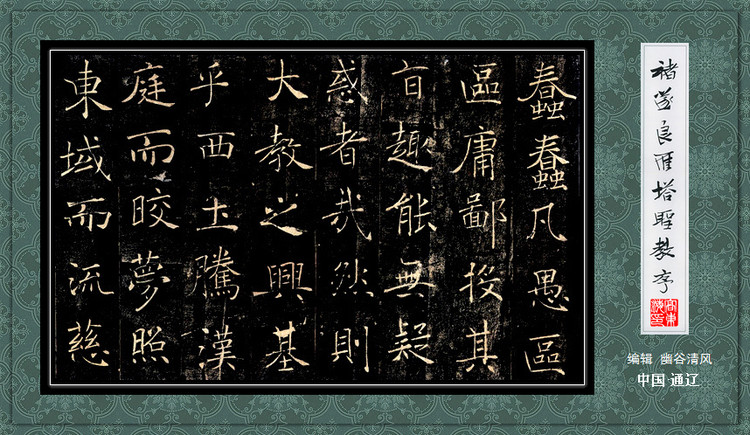 褚遂良雁塔聖教序
蠢蠢凡愚區
區庸鄙投其
旨趣能無疑
惑者哉然則
大教之興基
乎西土騰漢
庭而皎夢照
東域而流慈
编辑 幽谷清风
中国 通辽